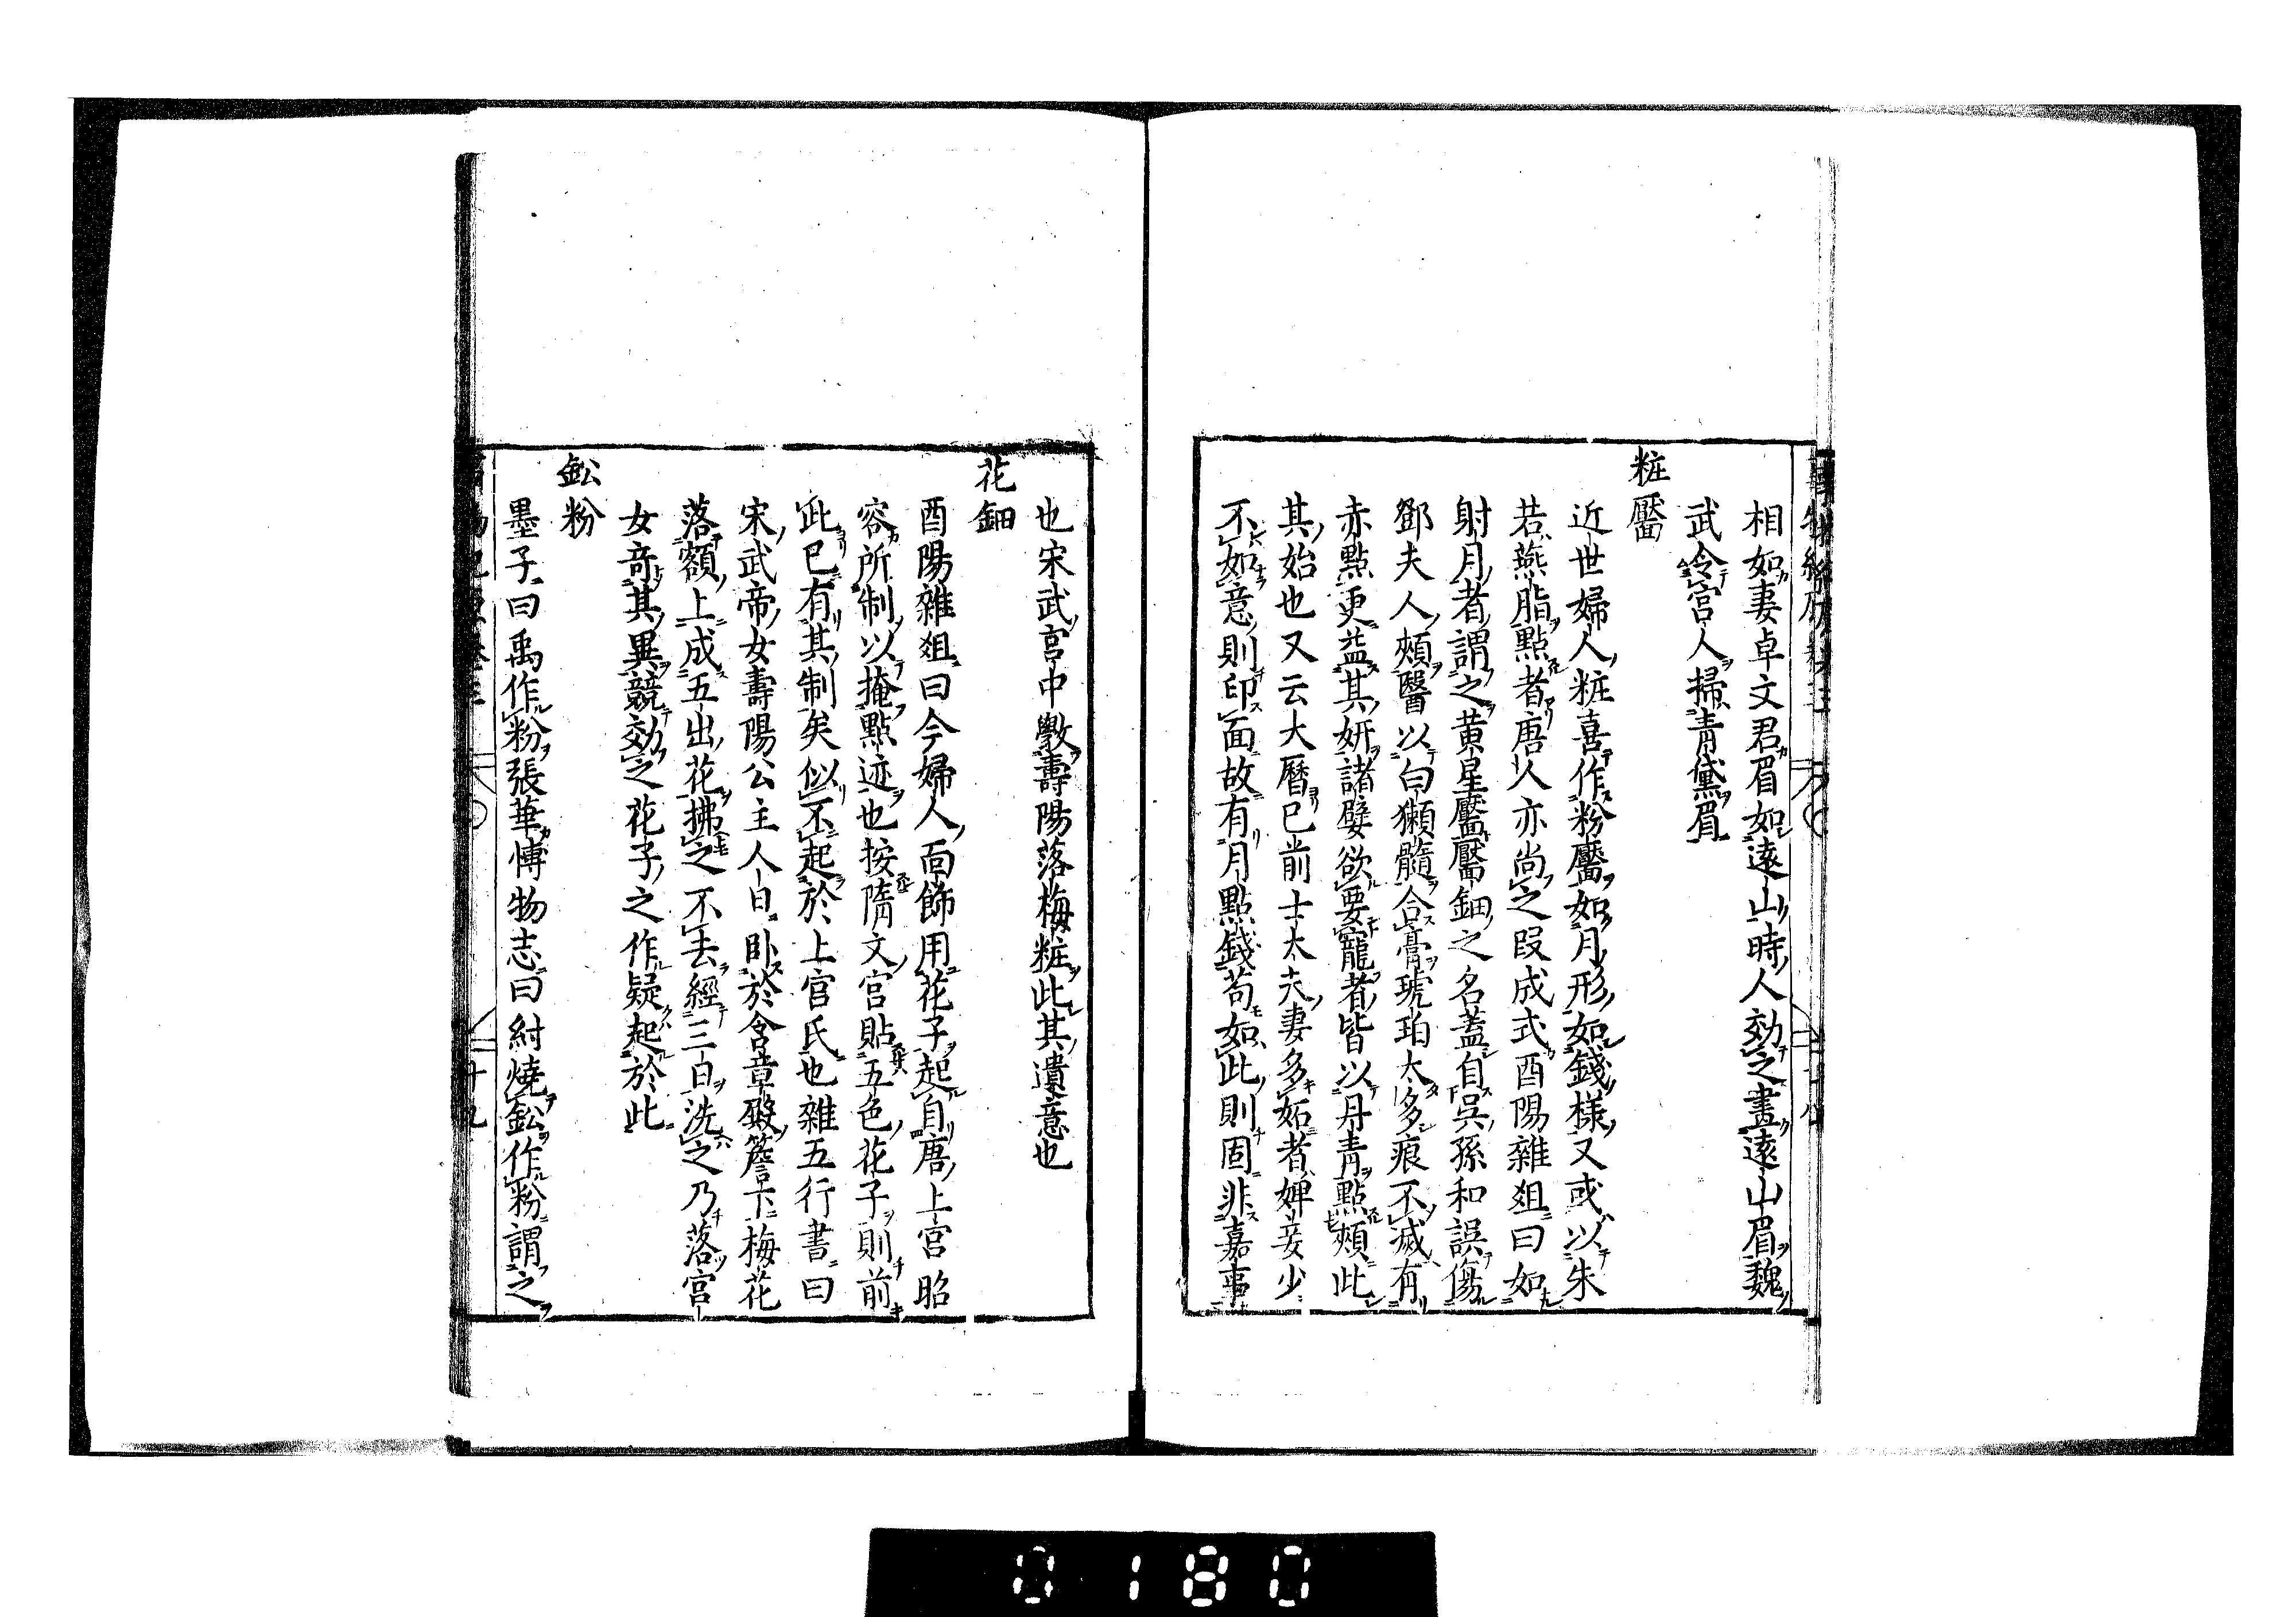 相如妻卓文君眉如遠山時人効之畫遠山眉魏
武令宮人掃青黛眉
粧靨
近世婦人粧喜作粉靨如月形如錢樣又或以朱
若燕脂點者唐人亦尚之段成式酉陽雜爼曰如
射月者謂之黄星靨靨鈿之名蓋自呉孫和誤傷
鄧夫人頰醫以白獺髓合膏琥珀太多痕不滅有
赤點更益其妍諸嬖欲要寵者皆以丹青點頰此
其始也又云大暦已前士大夫妻多妬者婢妾少
不如意則印面故有月點錢苟如此則固非嘉事
也宋武宮中斅壽陽落梅粧此其遺意也
花鈿
酉陽雜爼曰今婦人面飾用花子起自唐上官昭
容所制以掩點迹也按隋文宮貼五色花子則前
此已有其制矣似不起於上官氏也雜五行書曰
宋武帝女壽陽公主人日卧於含章殿簷下梅花
落額上成五出花拂之不去經三日洗之乃落宮
女竒其異競効之花子之作疑起於此
鈆粉
墨子曰禹作粉張華博物志曰紂燒鈆作粉謂之
十九
0180